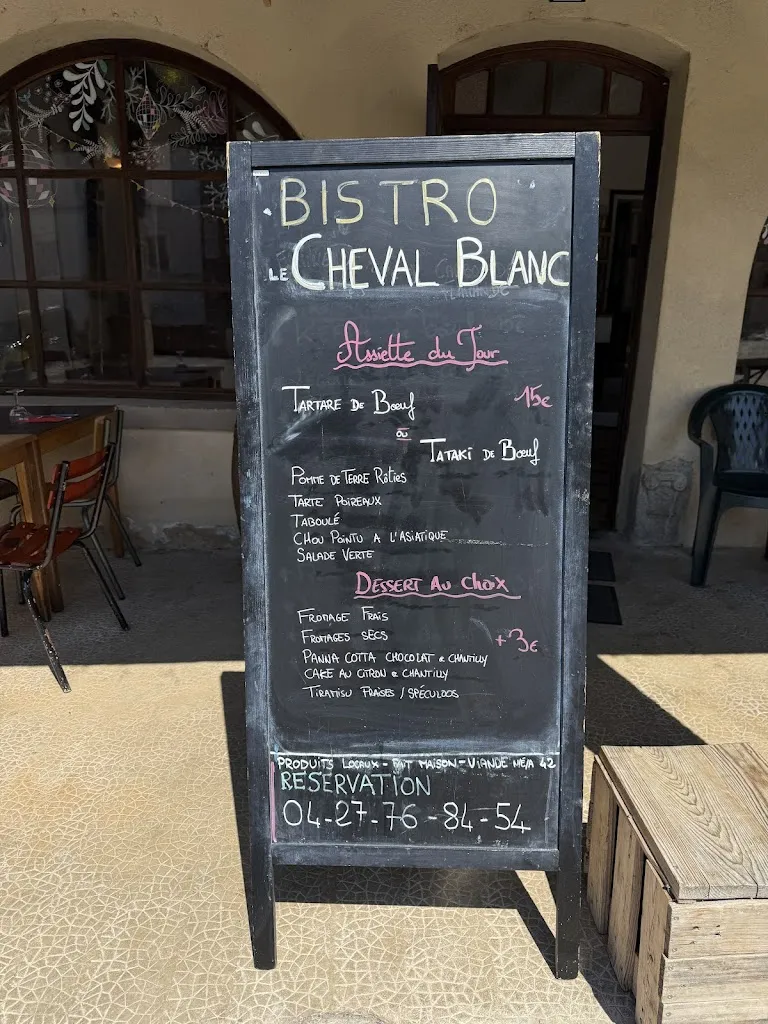 BISTRO
LE CHEVAL BLANC
Assiette du Jour
TARTARE DE Bœuf 15€
ou
TATAKI DE Bœuf
POMME DE TERRE RÔTIES
TARTE POIREAUX
TABOULÉ
CHOU POINTU A L'ASIATIQUE
SALADE VERTE
DESSERT AU CHOIX
FROMAGE FRAIS
FROMAGES SECS +3€
PANNA COTTA CHOCOLAT & CHANTILLY
CAKE AU CITRON & CHANTILLY
TIRAMISU FRAISES / SPÉCULOOS
PRODUITS LOCAUX - FAIT MAISON - VIANDE 42
RESERVATION
04-27-76-84-54